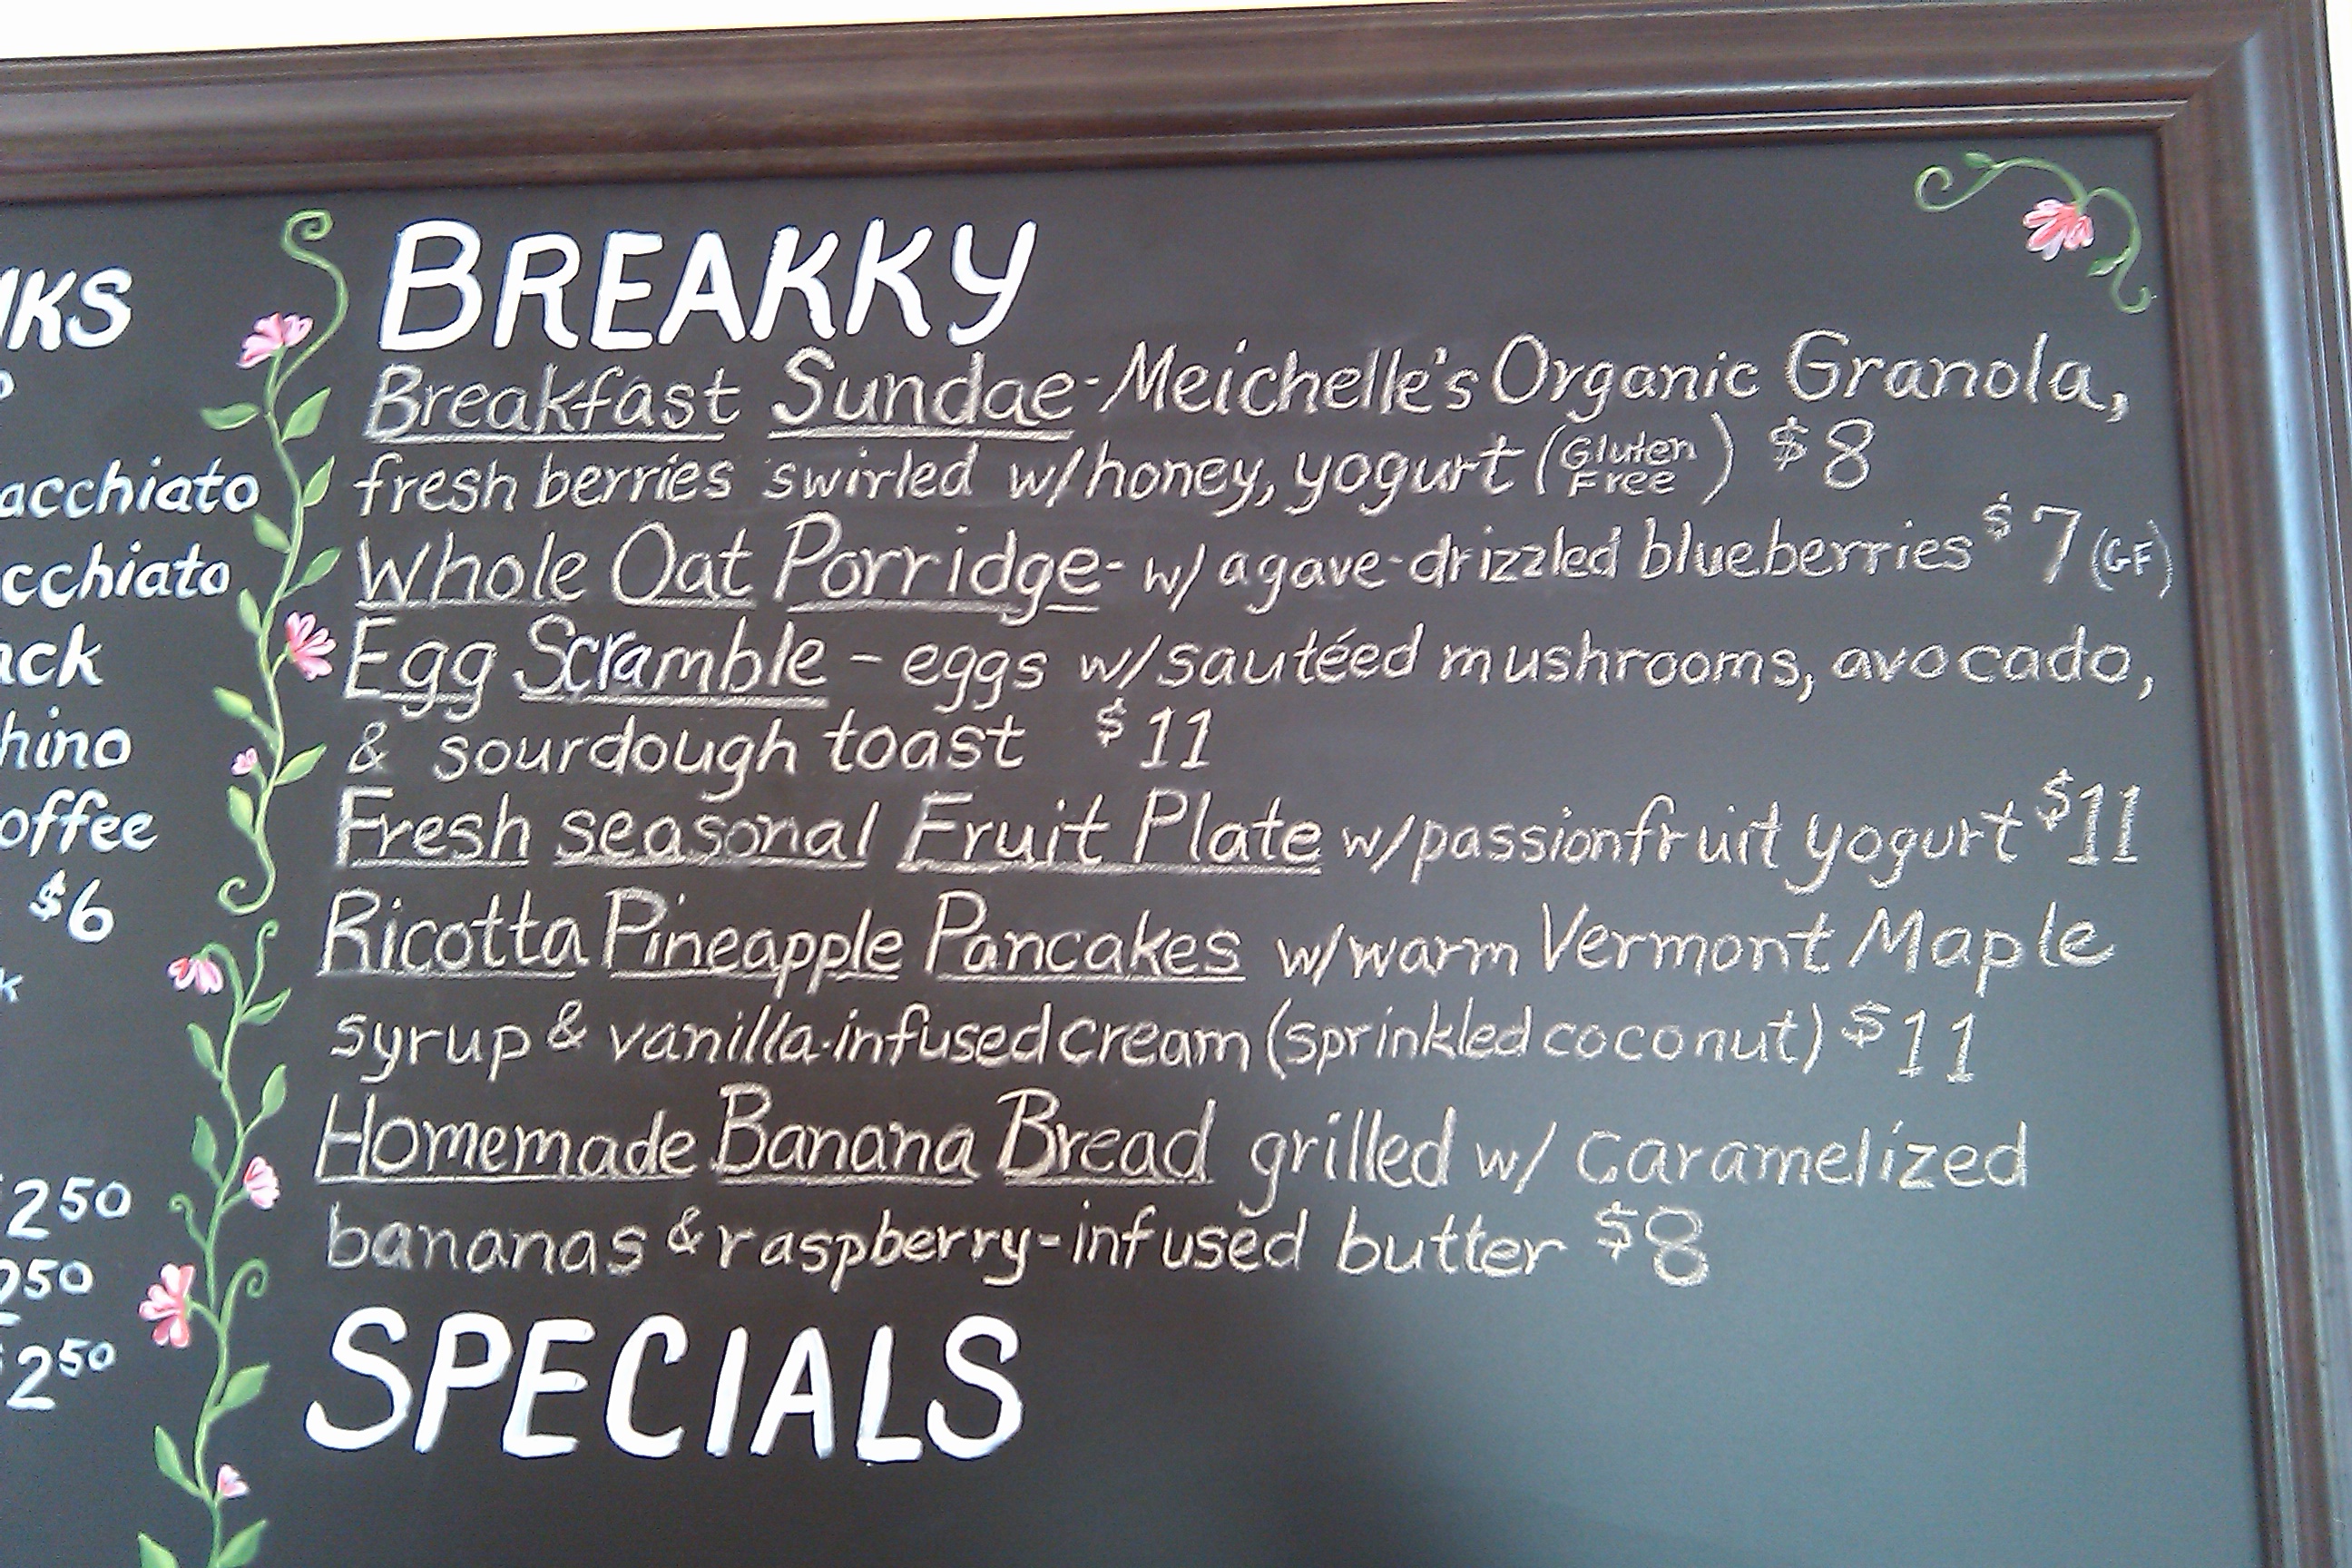 BREAKKY
Breakfast Sundae - Meichelle's Organic Granola,
fresh berries swirled w/honey, yogurt (Gluten Free) $8
Whole Oat Porridge - w/ agave-drizzled blueberries $7 (GF)
Egg Scramble - eggs w/sautéed mushrooms, avocado,
& sourdough toast $11
Fresh seasonal Fruit Plate w/passionfruit yogurt $11
Ricotta Pineapple Pancakes w/warm Vermont Maple
syrup & vanilla-infused cream (sprinkled coconut) $11
Homemade Banana Bread grilled w/ caramelized
bananas & raspberry-infused butter $8
SPECIALS
NKS
acchiato
cchiato
ack
hino
offee
$6
k
$2 50
2 50
$2 50